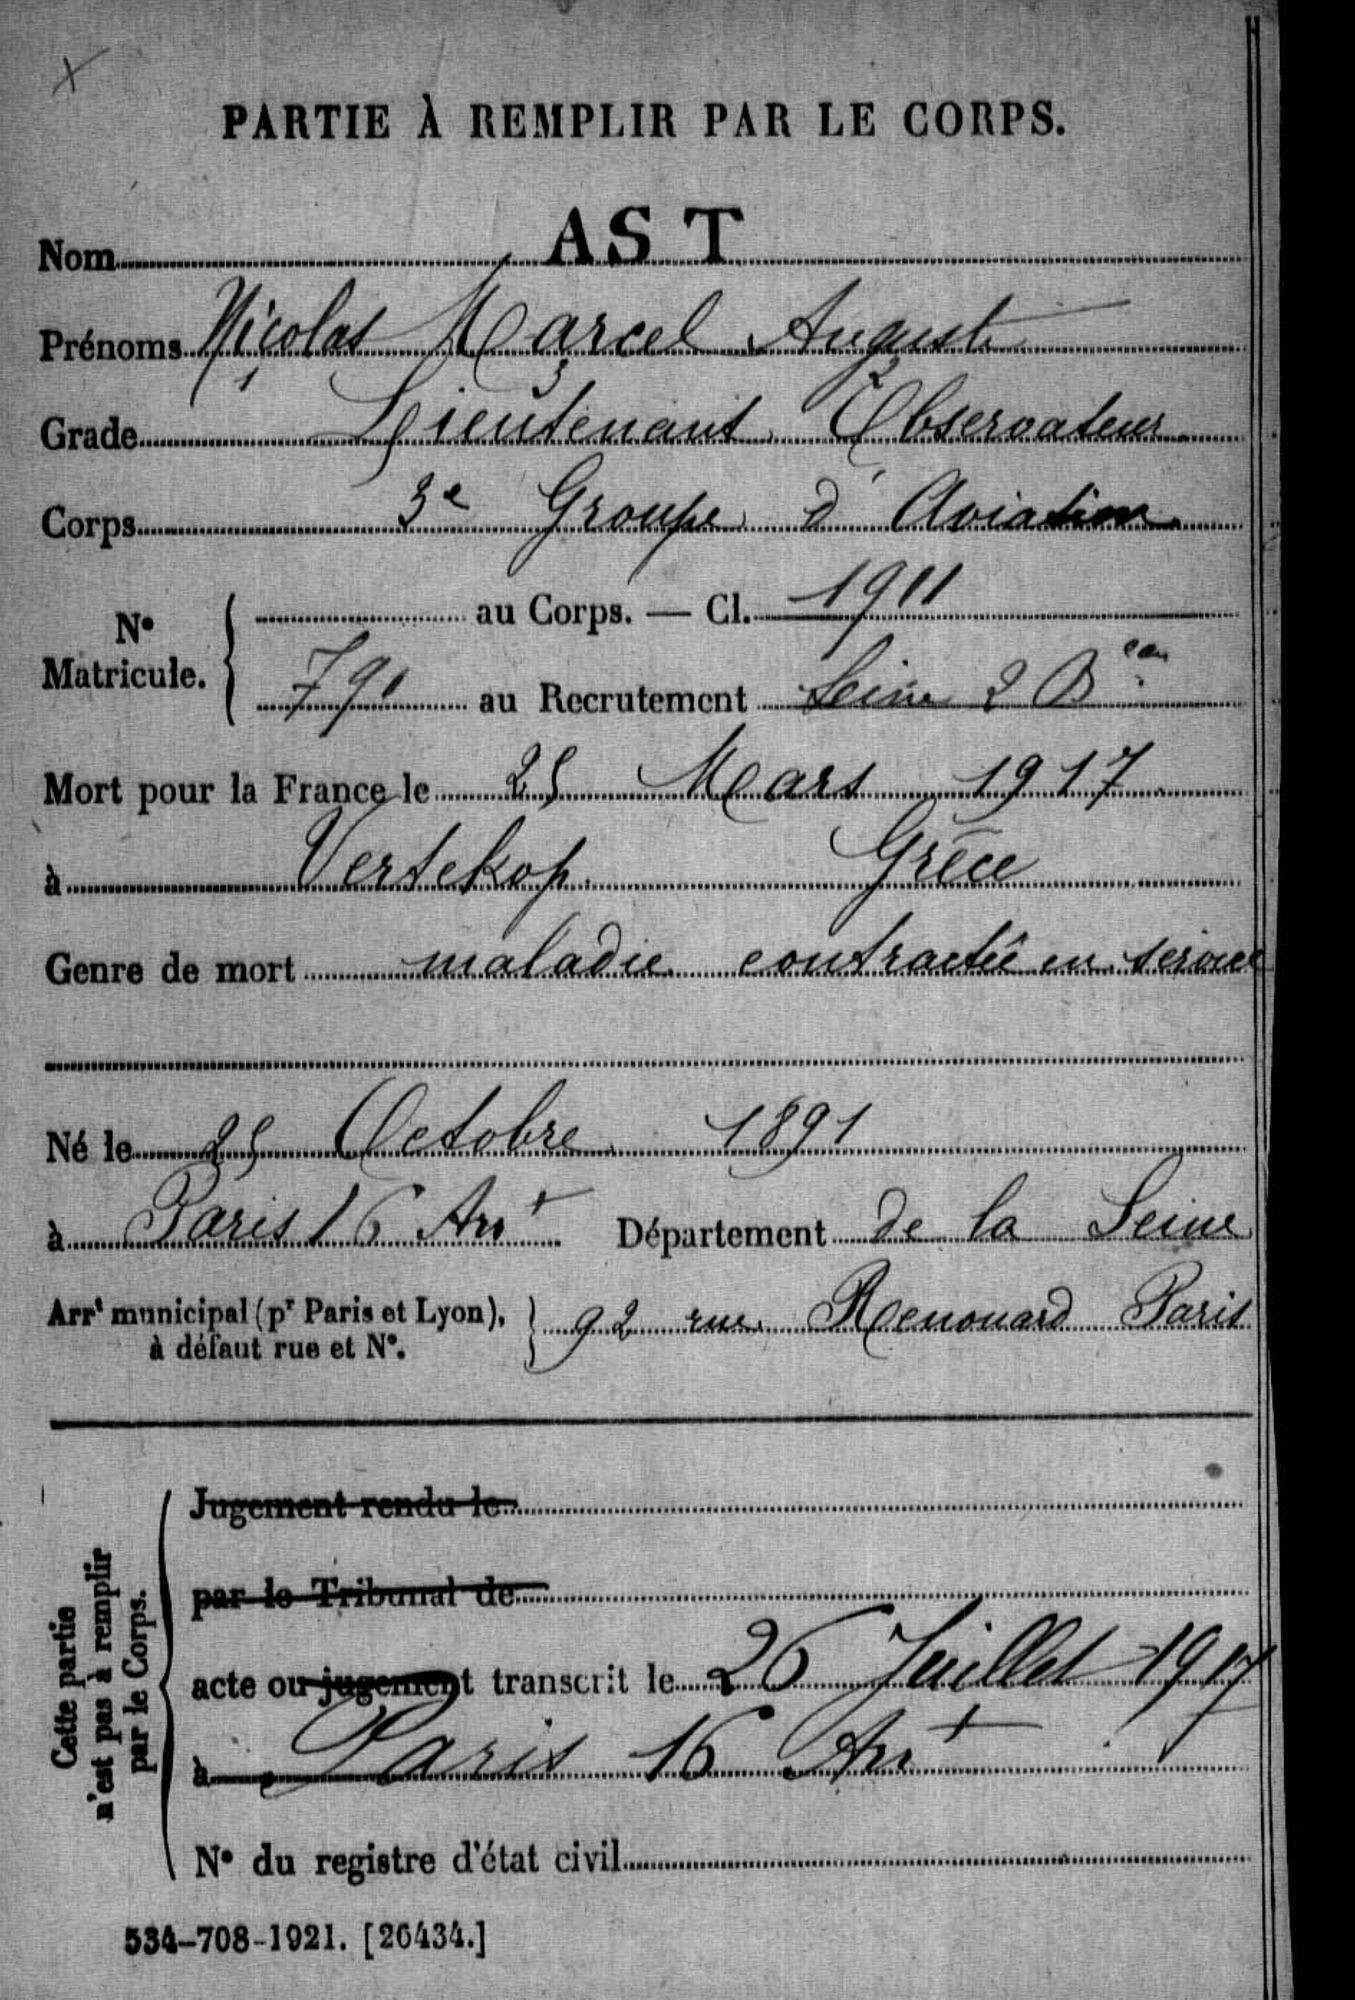 PARTIE À REMPLIR PAR LE CORPS.
Nom AST
Prénoms Nicolas Marcel Auguste
1 3 2
Grade Lieutenant Observateur
Corps 3e Groupe d'Aviation
N° Matricule. au Corps. — Cl. 1911
790 au Recrutement Seine 2 Beau
Mort pour la France le 25 Mars 1917
à Vertekop Grèce
Genre de mort maladie contractée en service
Né le 25 Octobre 1891
à Paris 16 Arrt Département de la Seine
Arrt municipal (pr Paris et Lyon), à défaut rue et N°. 92 rue Renouard Paris
Cette partie n'est pas à remplir par le Corps.
Jugement rendu le
par le Tribunal de
acte ou jugement transcrit le 26 Juillet 1917
à Paris 16 Arrt
N° du registre d'état civil
534-708-1921. [26434.]